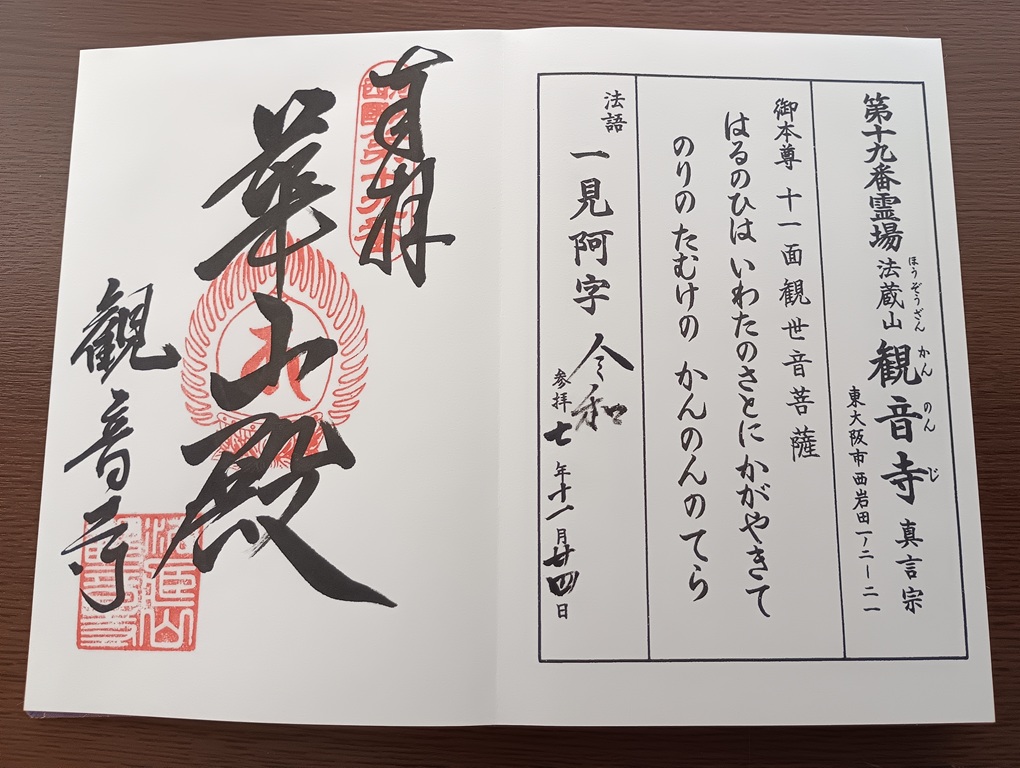 第十九番霊場 法蔵山 観音寺 真言宗
ほうぞうざん かんのんじ
東大阪市西岩田一ノ二ー二一
御本尊 十一面観世音菩薩
はるのひは いわたのさとに かがやきて
のりの たむけの かんのんのてら
法語 一見阿字
参拝 令和七年十一月廿四日
奉拝
第十九番
華山殿
観音寺